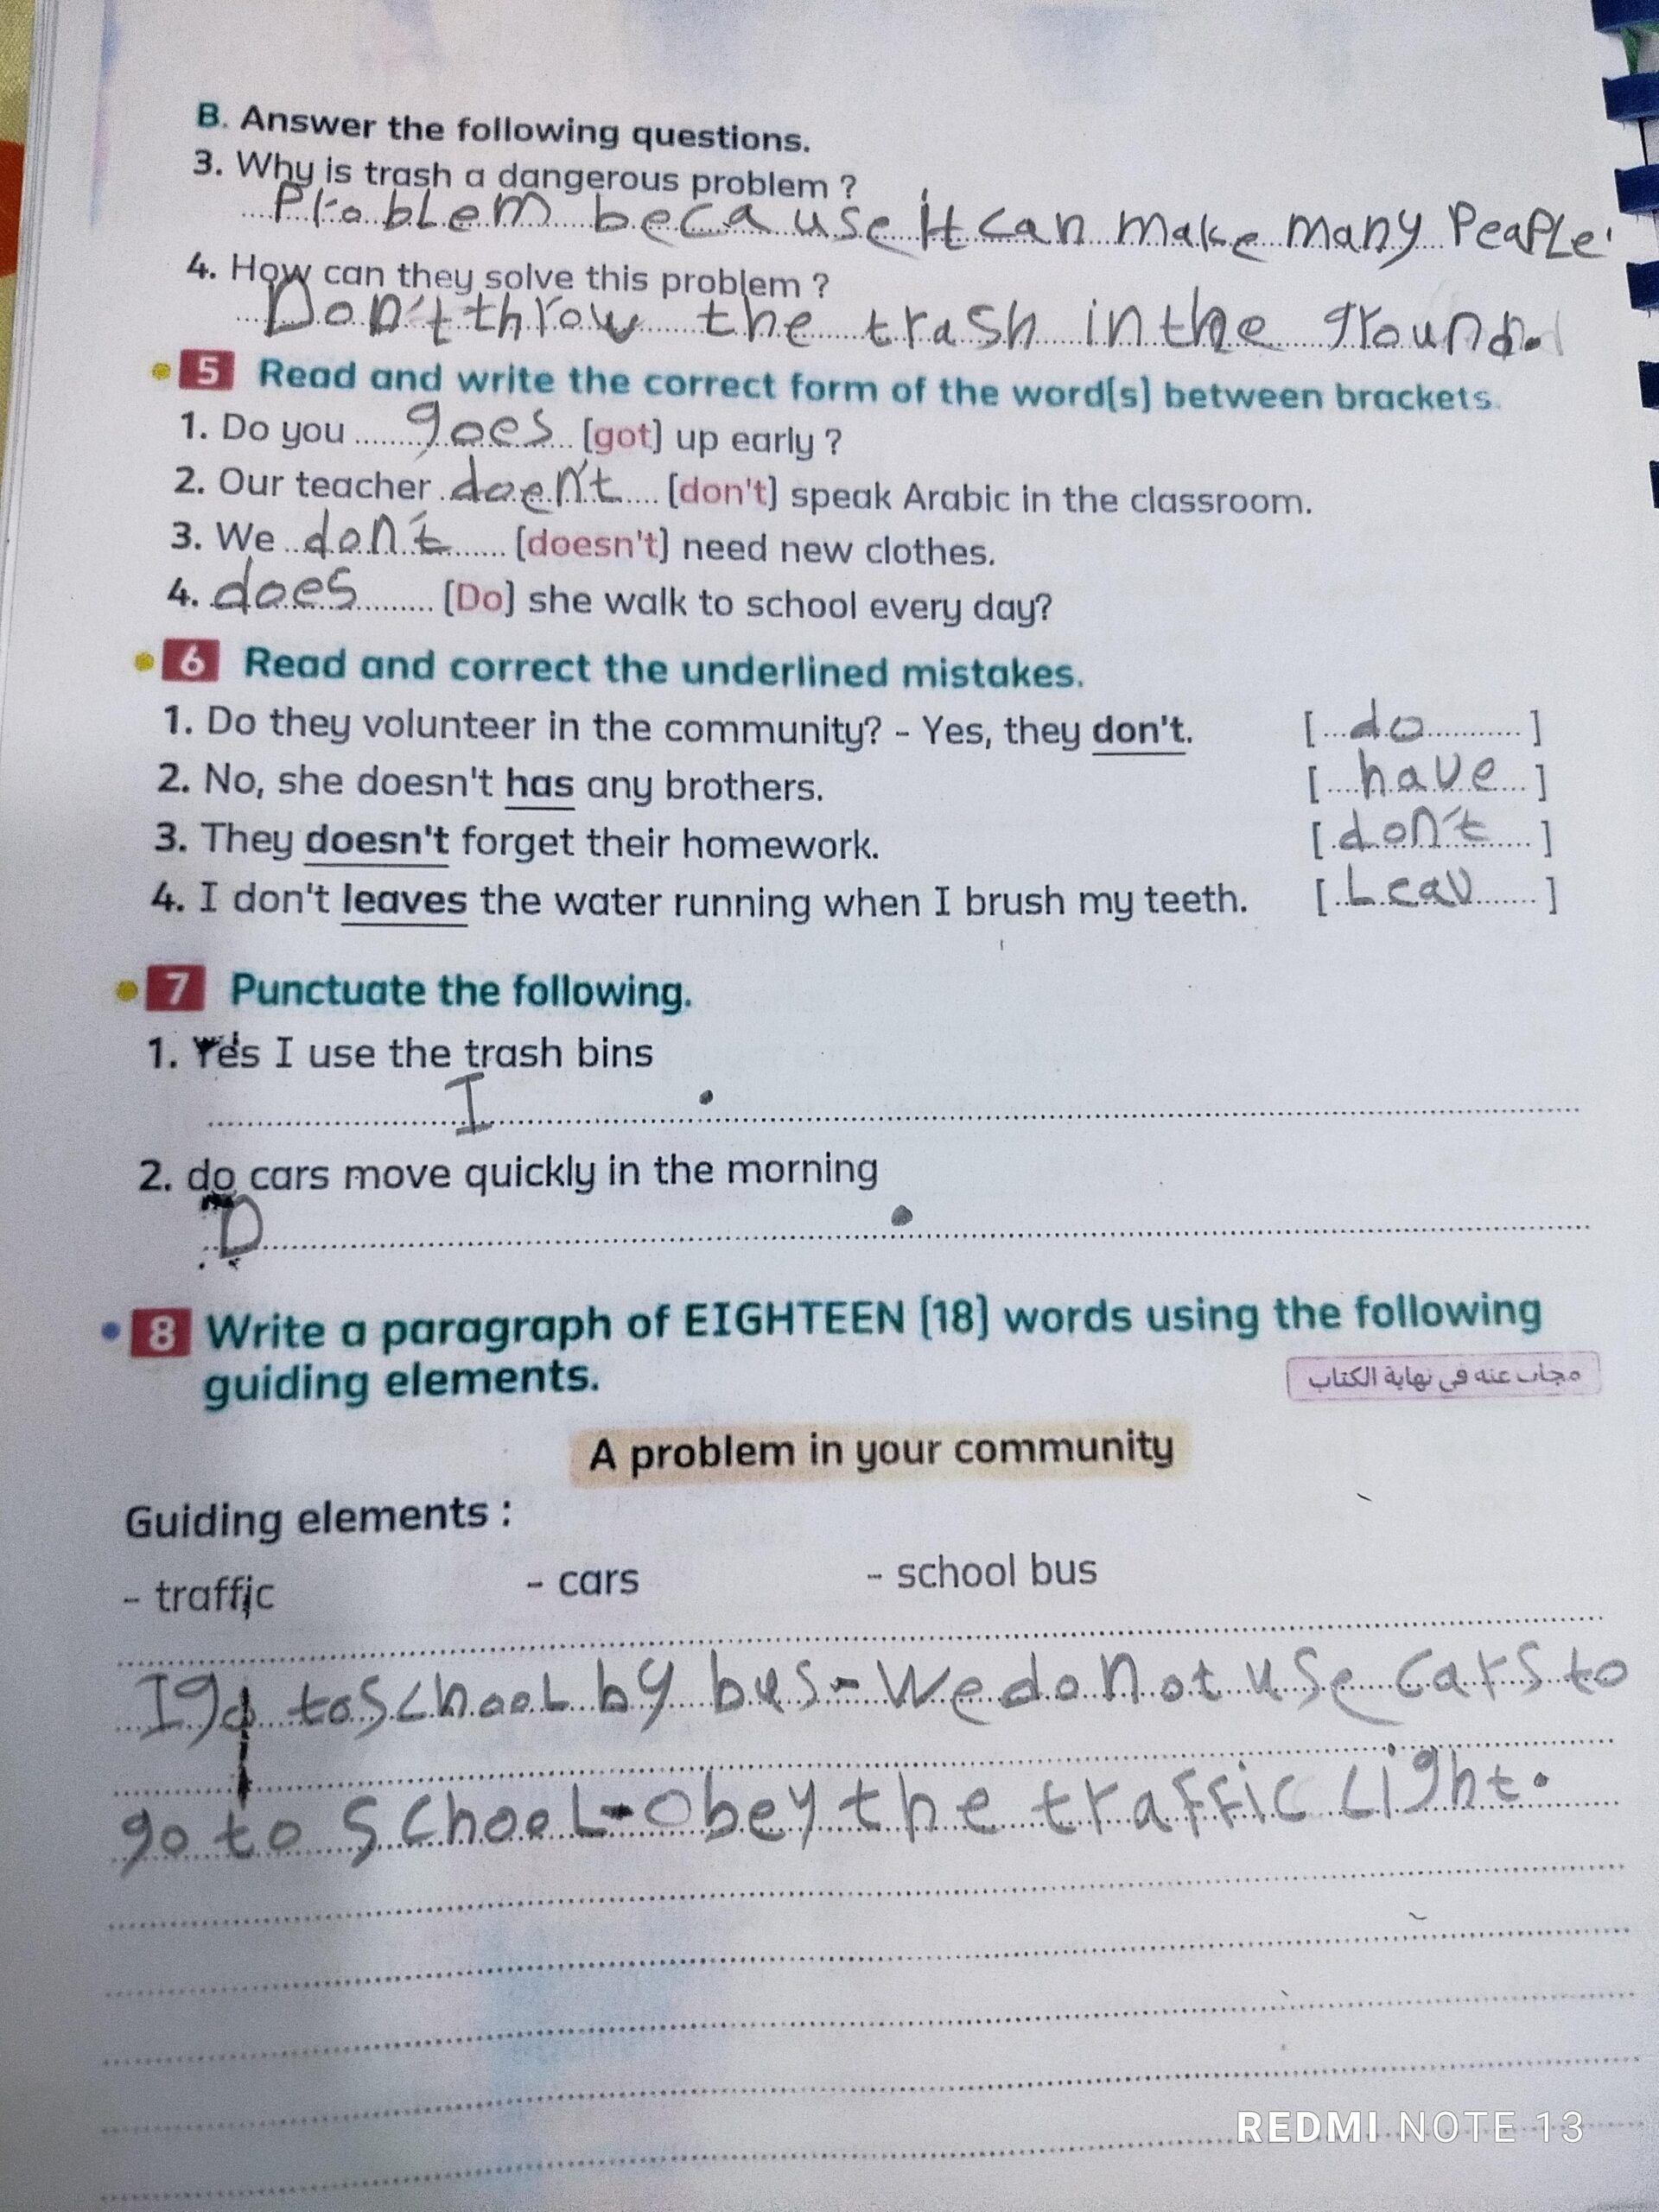 B. Answer the following questions.
3. Why is trash a dangerous problem ?
Problem because it can make many PeaPLe
4. How can they solve this problem ?
Don't throw the trash in the ground.
5 Read and write the correct form of the word(s) between brackets.
1. Do you goes [got] up early ?
2. Our teacher doen't [don't] speak Arabic in the classroom.
3. We don't [doesn't] need new clothes.
4. does [Do] she walk to school every day?
6 Read and correct the underlined mistakes.
1. Do they volunteer in the community? - Yes, they don't. [ do ]
2. No, she doesn't has any brothers. [ have ]
3. They doesn't forget their homework. [ don't ]
4. I don't leaves the water running when I brush my teeth. [ Leav ]
7 Punctuate the following.
1. Yes I use the trash bins
I .
2. do cars move quickly in the morning
D .
8 Write a paragraph of EIGHTEEN [18] words using the following
guiding elements.
مجاب عنه في نهاية الكتاب
A problem in your community
Guiding elements :
- traffic - cars - school bus
I go to school by bus - We do not use cars to
go to school - Obey the traffic light.
REDMI NOTE 13